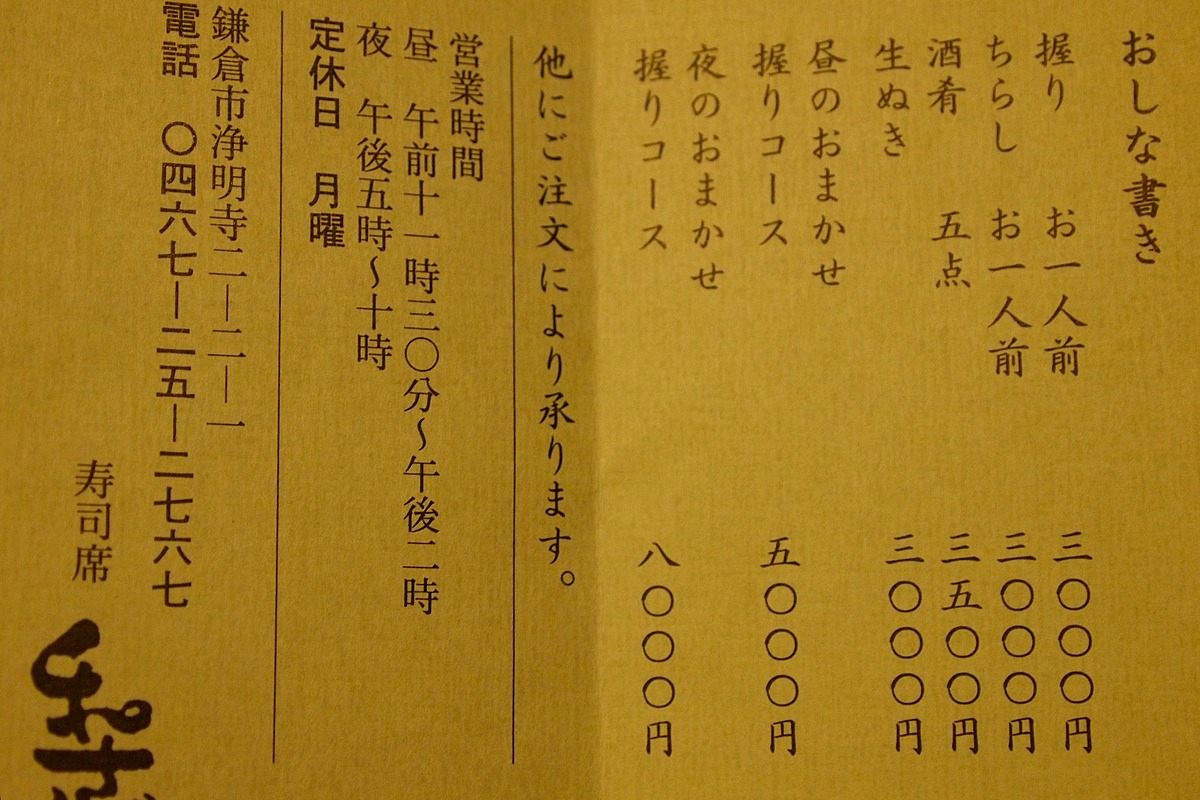 おしな書き
握り　お一人前　三〇〇〇円
ちらし　お一人前　三〇〇〇円
酒肴　五点　三五〇〇円
生ぬき　三〇〇〇円
昼のおまかせ
握りコース　五〇〇〇円
夜のおまかせ
握りコース　八〇〇〇円
他にご注文により承ります。
営業時間
昼　午前十一時三〇分〜午後二時
夜　午後五時〜十時
定休日　月曜
鎌倉市浄明寺二―二―一
電話　〇四六七―二五―二七六七
寿司席
和